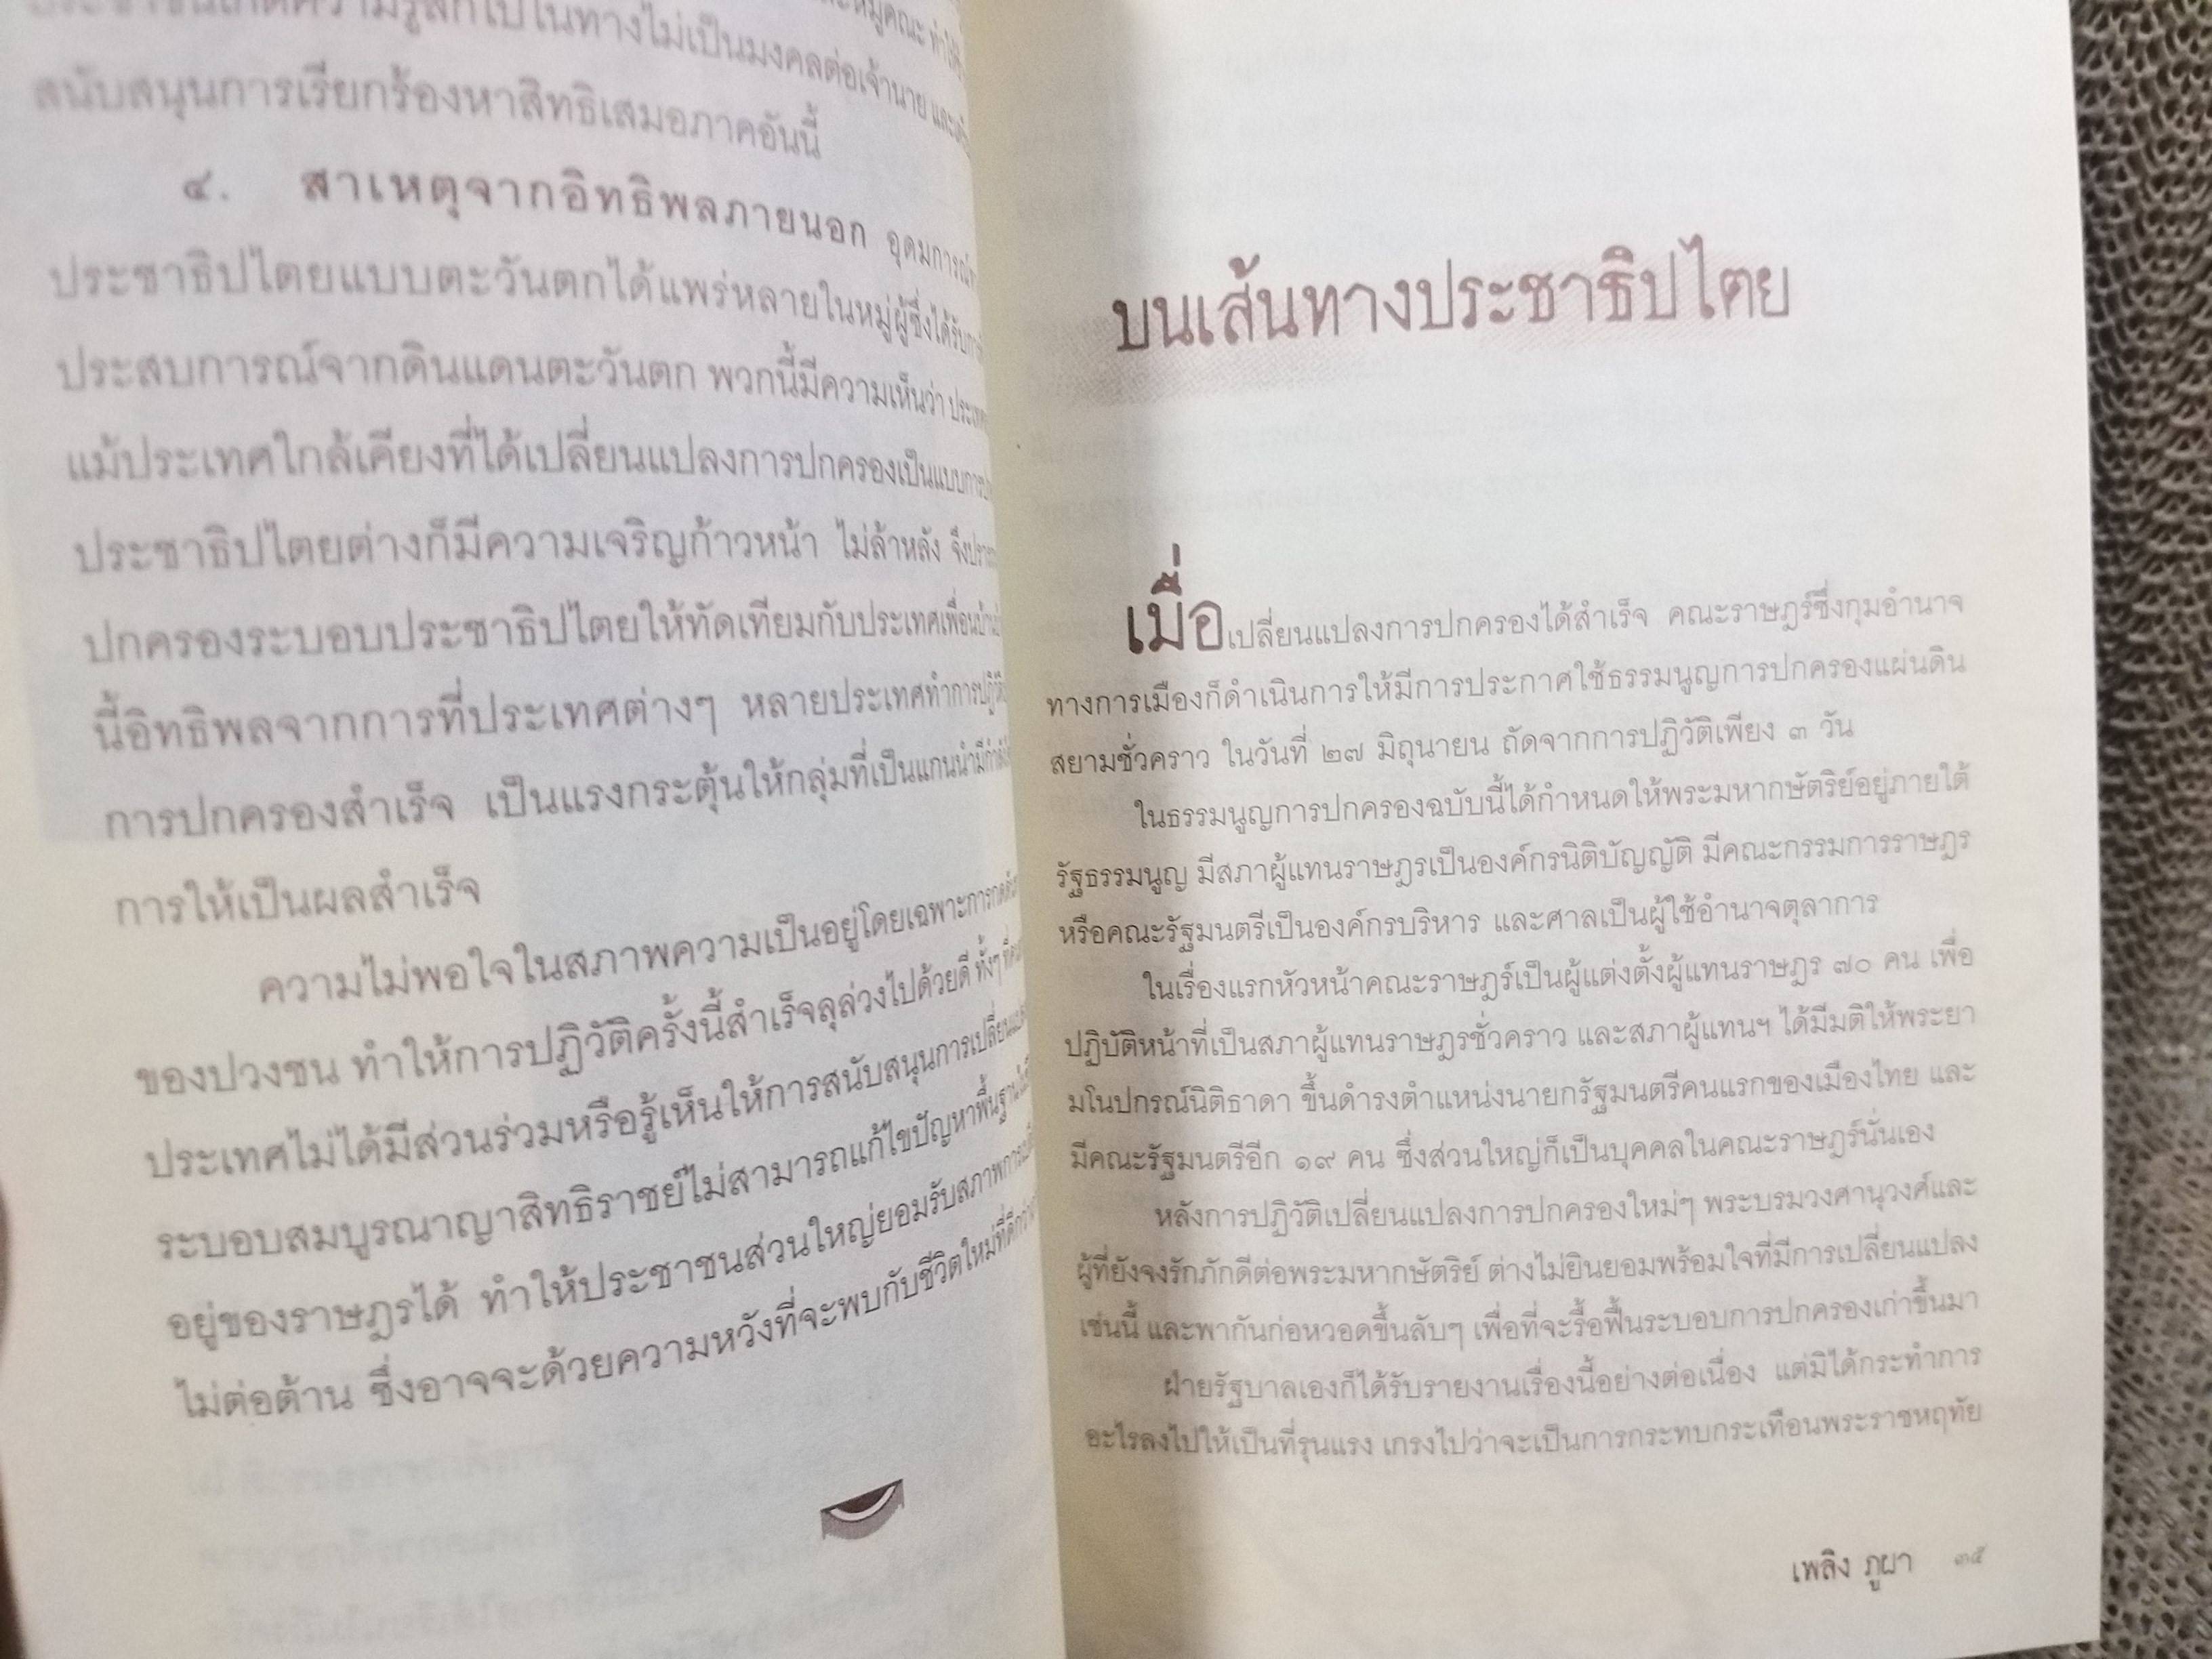 สนับสนุนการเรียกร้องหาสิทธิเสมอภาคอันนี้
๔. สาเหตุจากอิทธิพลภายนอก
ประชาธิปไตยแบบตะวันตกได้แพร่หลายในหมู่ผู้ซึ่งได้รับ
ประสบการณ์จากดินแดนตะวันตก พวกนี้มีความเห็นว่า
แม้ประเทศใกล้เคียงที่ได้เปลี่ยนแปลงการปกครองเป็นแบบ
ประชาธิปไตยต่างก็มีความเจริญก้าวหน้า ไม่ล้าหลัง
ปกครองระบอบประชาธิปไตยให้ทัดเทียมกับประเทศ
นี้อิทธิพลจากการที่ประเทศต่างๆ หลายประเทศทำการ
การปกครองสำเร็จ เป็นแรงกระตุ้นให้กลุ่มที่เป็นแกนนำ
การให้เป็นผลสำเร็จ
ความไม่พอใจในสภาพความเป็นอยู่โดยเฉพาะ
ของปวงชน ทำให้การปฏิวัติครั้งนี้สำเร็จลุล่วงไปด้วยดี ทั้งๆ
ประเทศไม่ได้มีส่วนร่วมหรือรู้เห็นให้การสนับสนุนการ
ระบอบสมบูรณาญาสิทธิราชย์ไม่สามารถแก้ไขปัญหาพื้นฐาน
อยู่ของราษฎรได้ ทำให้ประชาชนส่วนใหญ่ยอมรับสภาพการ
ไม่ต่อต้าน ซึ่งอาจจะด้วยความหวังที่จะพบกับชีวิตใหม่ที่ดีกว่า
บนเส้นทางประชาธิปไตย
เมื่อเปลี่ยนแปลงการปกครองได้สำเร็จ คณะราษฎร์ซึ่งกุมอำนาจ
ทางการเมืองก็ดำเนินการให้มีการประกาศใช้ธรรมนูญการปกครองแผ่นดิน
สยามชั่วคราว ในวันที่ ๒๗ มิถุนายน ถัดจากการปฏิวัติเพียง ๓ วัน
ในธรรมนูญการปกครองฉบับนี้ได้กำหนดให้พระมหากษัตริย์อยู่ภายใต้
รัฐธรรมนูญ มีสภาผู้แทนราษฎรเป็นองค์กรนิติบัญญัติ มีคณะกรรมการราษฎร
หรือคณะรัฐมนตรีเป็นองค์กรบริหาร และศาลเป็นผู้ใช้อำนาจตุลาการ
ในเรื่องแรกหัวหน้าคณะราษฎร์เป็นผู้แต่งตั้งผู้แทนราษฎร ๗๐ คน เพื่อ
ปฏิบัติหน้าที่เป็นสภาผู้แทนราษฎรชั่วคราว และสภาผู้แทนฯ ได้มีมติให้พระยา
มโนปกรณ์นิติธาดา ขึ้นดำรงตำแหน่งนายกรัฐมนตรีคนแรกของเมืองไทย และ
มีคณะรัฐมนตรีอีก ๑๙ คน ซึ่งส่วนใหญ่ก็เป็นบุคคลในคณะราษฎร์นั่นเอง
หลังการปฏิวัติเปลี่ยนแปลงการปกครองใหม่ๆ พระบรมวงศานุวงศ์และ
ผู้ที่ยังจงรักภักดีต่อพระมหากษัตริย์ ต่างไม่ยินยอมพร้อมใจที่มีการเปลี่ยนแปลง
เช่นนี้ และพากันก่อหวอดขึ้นลับๆ เพื่อที่จะรื้อฟื้นระบอบการปกครองเก่าขึ้นมา
ฝ่ายรัฐบาลเองก็ได้รับรายงานเรื่องนี้อย่างต่อเนื่อง แต่มิได้กระทำการ
อะไรลงไปให้เป็นที่รุนแรง เกรงไปว่าจะเป็นการกระทบกระเทือนพระราชหฤทัย
เพลิง ภูผา ๓๕